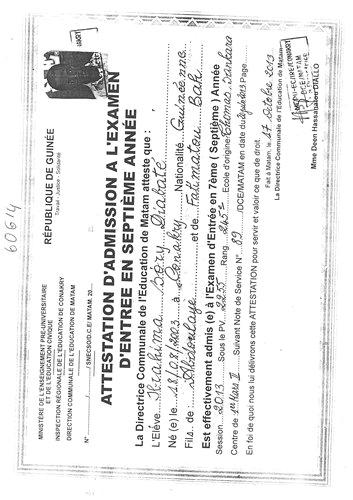 60614
MINISTÈRE DE L'ENSEIGNEMENT PRE-UNIVERSITAIRE
ET DE L'EDUCATION CIVIQUE
INSPECTION RÉGIONALE DE L'EDUCATION DE CONAKRY
DIRECTION COMMUNALE DE L'EDUCATION DE MATAM
N° / /SMECS/D.C.E/ MATAM. 20
RÉPUBLIQUE DE GUINÉE
Travail - Justice - Solidarité
ATTESTATION D'ADMISSION A L'EXAMEN
D'ENTREE EN SEPTIÈME ANNÉE
La Directrice Communale de l'Education de Matam atteste que :
L'Elève Ibrahima Sory Diabaté
Né (e) le 18/08/2003 à Conakry Nationalité Guinéenne
Fils de Abdoulaye et de Fatimatou Bah
Est effectivement admis (e) à l'Examen d'Entrée en 7ème ( Septième ) Année
Session 2013 Sous le PV 2255 Rang 265e Ecole d'origine Thomas Sankara
Centre de 1er Mars II Suivant Note de Service N° 89 /DCE/MATAM en date du Juin 2013
En foi de quoi nous lui délivrons cette ATTESTATION pour servir et valoir ce que de droit.
Fait à Matam, le 17 Octobre 2013
La Directrice Communale de l'Education de Matam
Mme Deen Hassanatou DIALLO